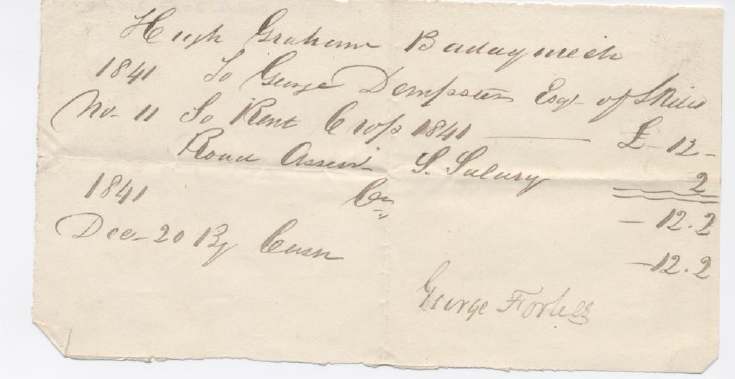 Hugh Graham Badaymeich
1841 To George Dempster Esqr of Skibo
No. 11 To Rent Crop 1841 £-12-
Road Assess. S. Salary 2
1841 Cr - 12.2
Dec- 20 By Cash -12.2
George Forbes